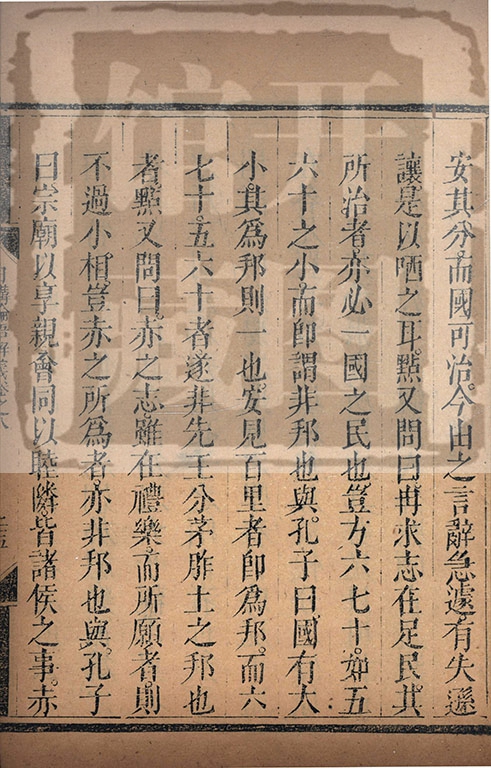 安其分而國可治今由之言辭急遽有失遜
讓是以哂之耳點又問曰冉求志在足民其
所治者亦必一國之民也豈方六七十如五
六十之小而即謂非邦也與孔子曰國有大
小其為邦則一也安見百里者即為邦而六
七十五六十者遂非先王分茅胙土之邦也
者點又問曰赤之志雖在禮樂而所願者則
不過小相豈赤之所為者亦非邦也與孔子
曰宗廟以享親會同以睦隣皆諸侯之事赤